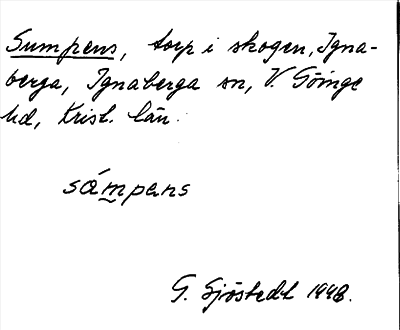 Sumpens, torp i skogen, Igna-
berga, Ignaberga sn, V. Göinge
hd, Krist. län.
sámpens
G. Sjöstedt 1998.